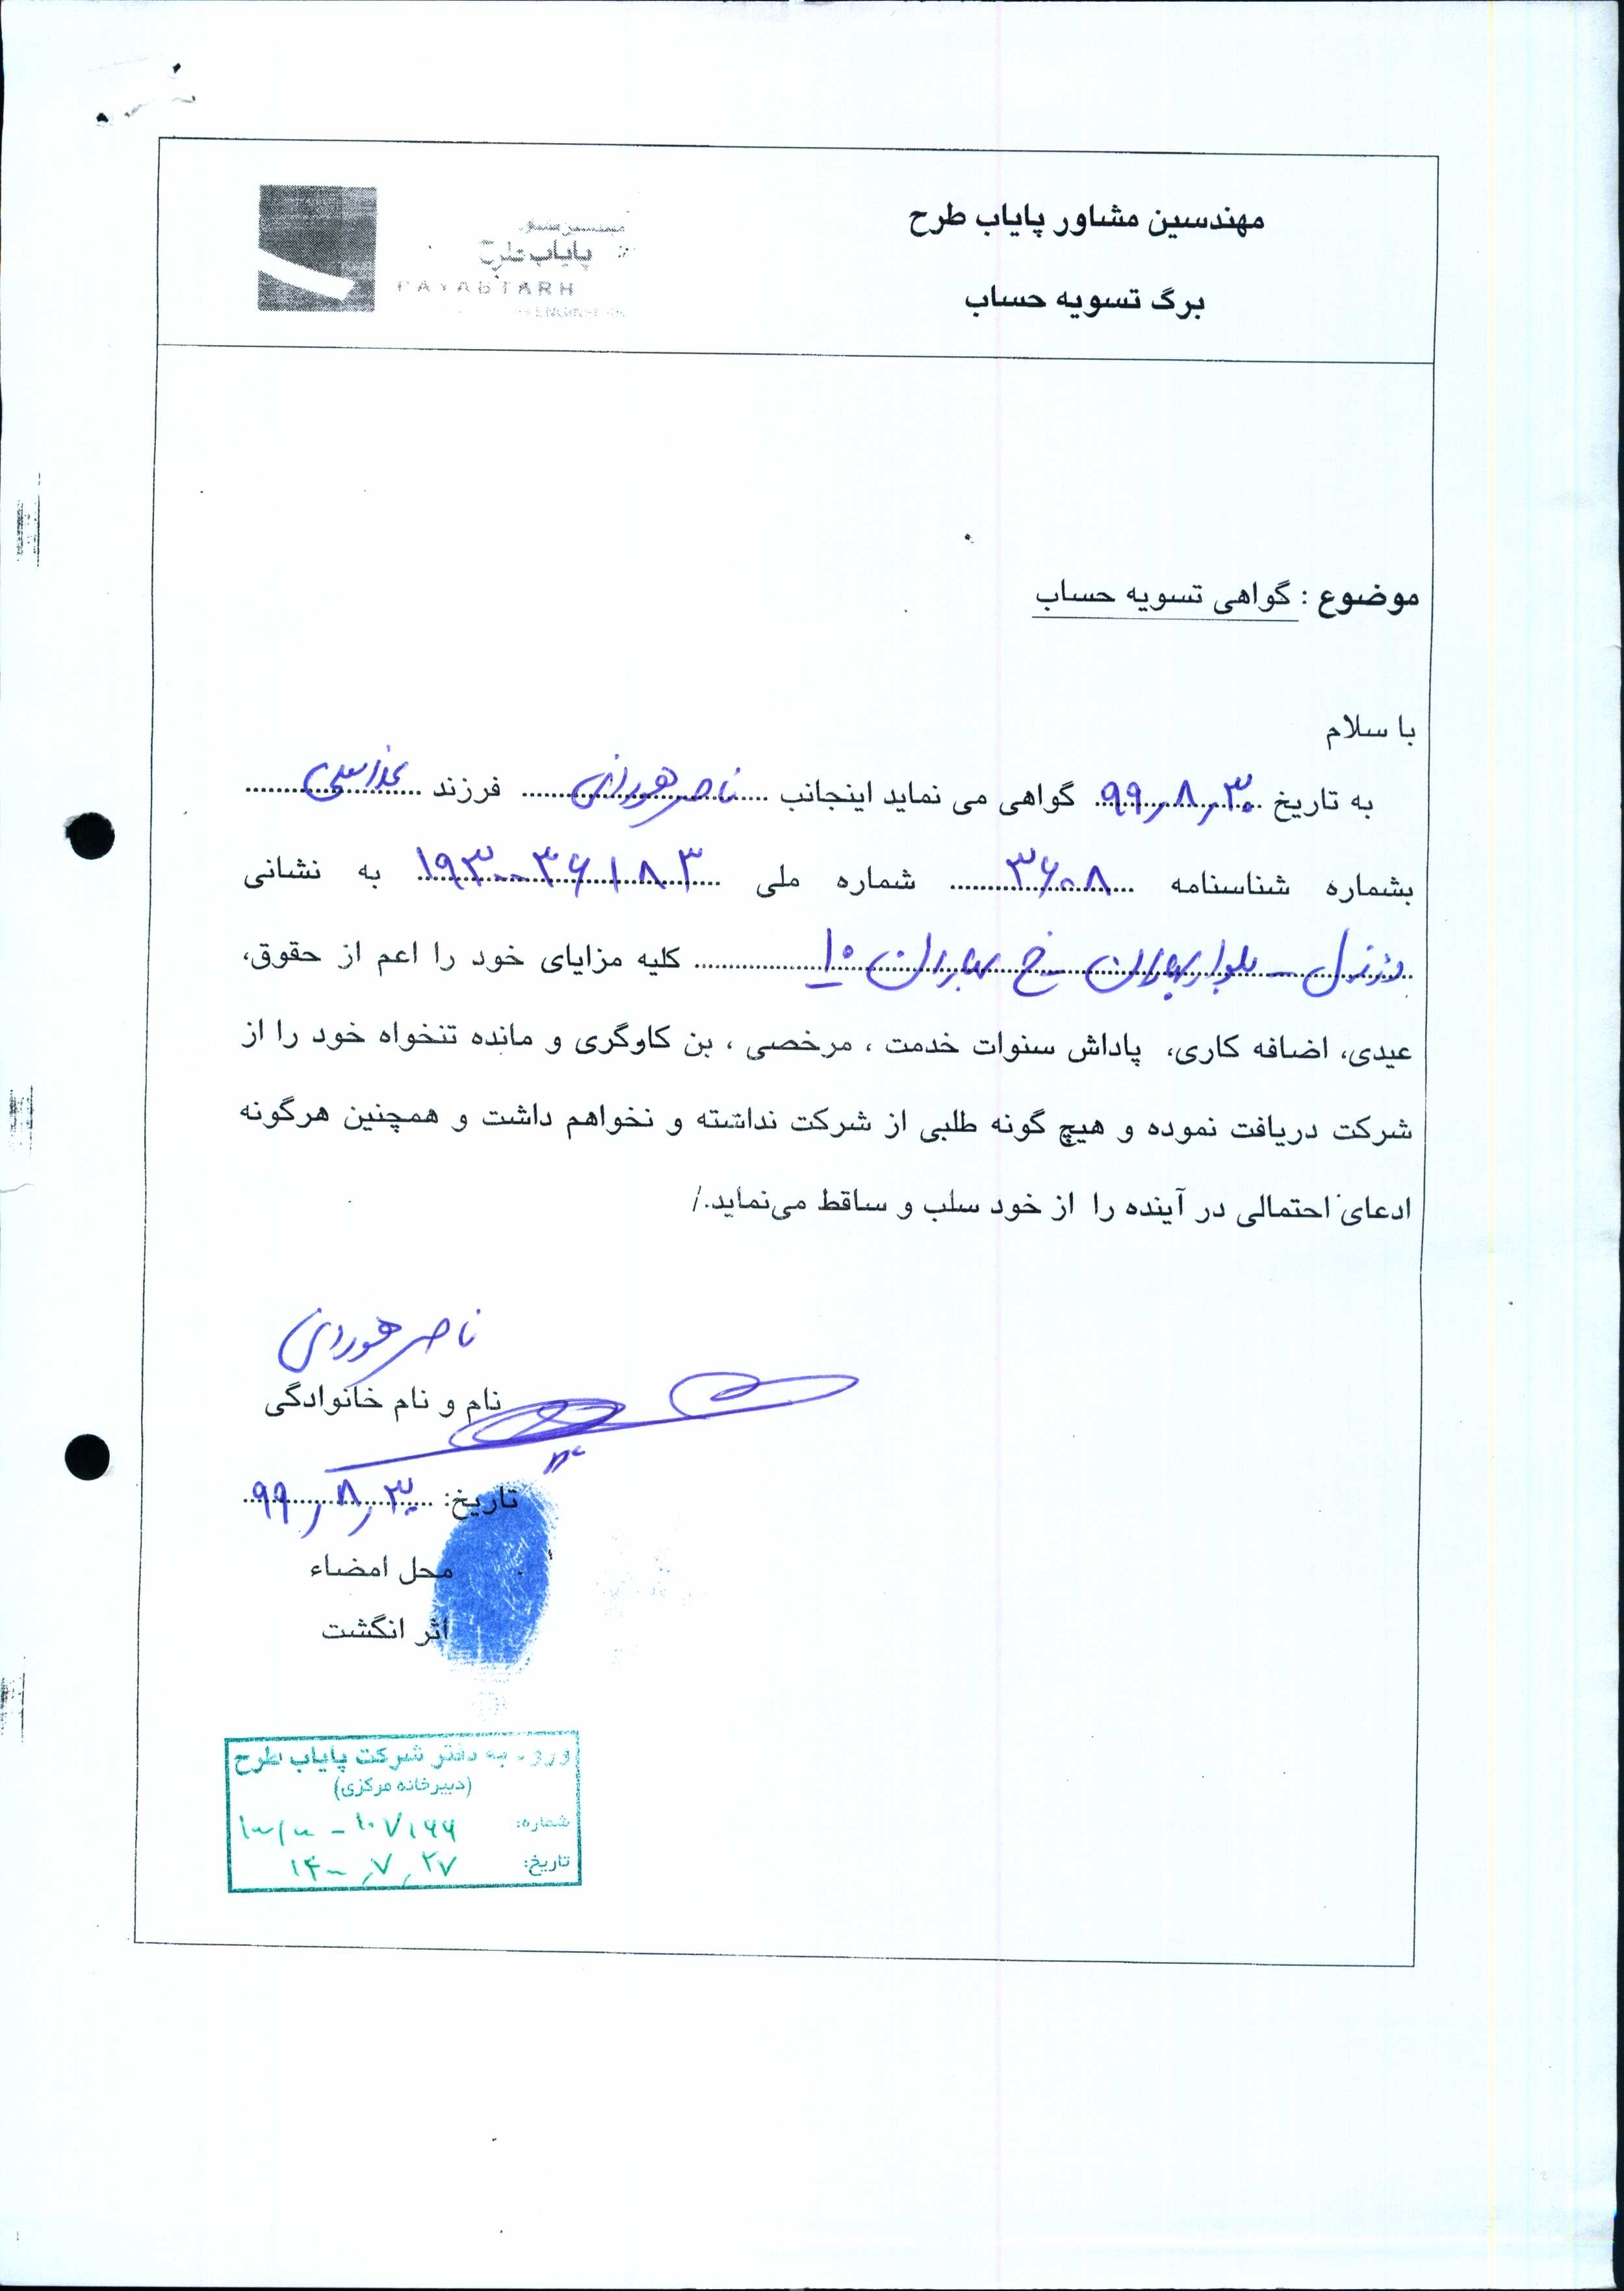 مهندسین مشاور پایاب طرح
برگ تسویه حساب
پایاب طرح
PAYABTARH
موضوع : گواهی تسویه حساب
با سلام
به تاریخ ۹۹٫۸٫۳۰ گواهی می نماید اینجانب ناصر فرزند
بشماره شناسنامه ۳۶۰۸ شماره ملی ۱۹۳۰۰۳۶۱۸۳ به نشانی
دزفول - بلوار - خ ۱۰ کلیه مزایای خود را اعم از حقوق،
عیدی، اضافه کاری، پاداش سنوات خدمت ، مرخصی ، بن کاوگری و مانده تنخواه خود را از
شرکت دریافت نموده و هیچ گونه طلبی از شرکت نداشته و نخواهم داشت و همچنین هرگونه
ادعای احتمالی در آینده را از خود سلب و ساقط می‌نماید./
ناصر
نام و نام خانوادگی
تاریخ: ۹۹٫۸٫۳۰
محل امضاء
اثر انگشت
ورود به دفتر شرکت پایاب طرح
(دبیرخانه مرکزی)
شماره:
تاریخ: ۱۴۰۰٫۷٫۲۷